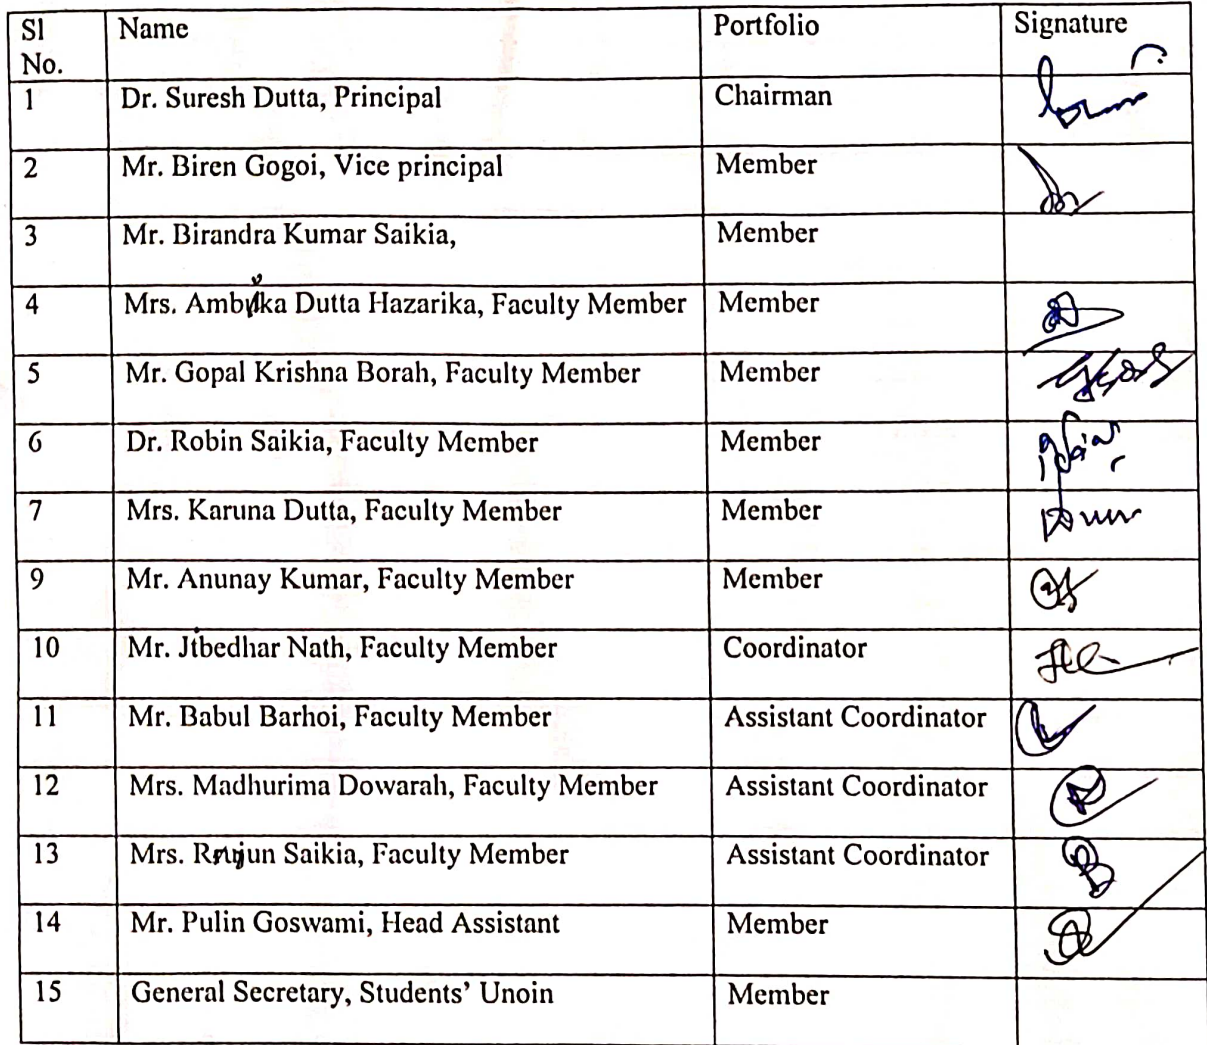 Sl No. Name Portfolio Signature
1 Dr. Suresh Dutta, Principal Chairman
2 Mr. Biren Gogoi, Vice principal Member
3 Mr. Birandra Kumar Saikia, Member
4 Mrs. Ambika Dutta Hazarika, Faculty Member Member
5 Mr. Gopal Krishna Borah, Faculty Member Member
6 Dr. Robin Saikia, Faculty Member Member
7 Mrs. Karuna Dutta, Faculty Member Member
9 Mr. Anunay Kumar, Faculty Member Member
10 Mr. Jibedhar Nath, Faculty Member Coordinator
11 Mr. Babul Barhoi, Faculty Member Assistant Coordinator
12 Mrs. Madhurima Dowarah, Faculty Member Assistant Coordinator
13 Mrs. Saikia, Faculty Member Assistant Coordinator
14 Mr. Pulin Goswami, Head Assistant Member
15 General Secretary, Students' Unoin Member